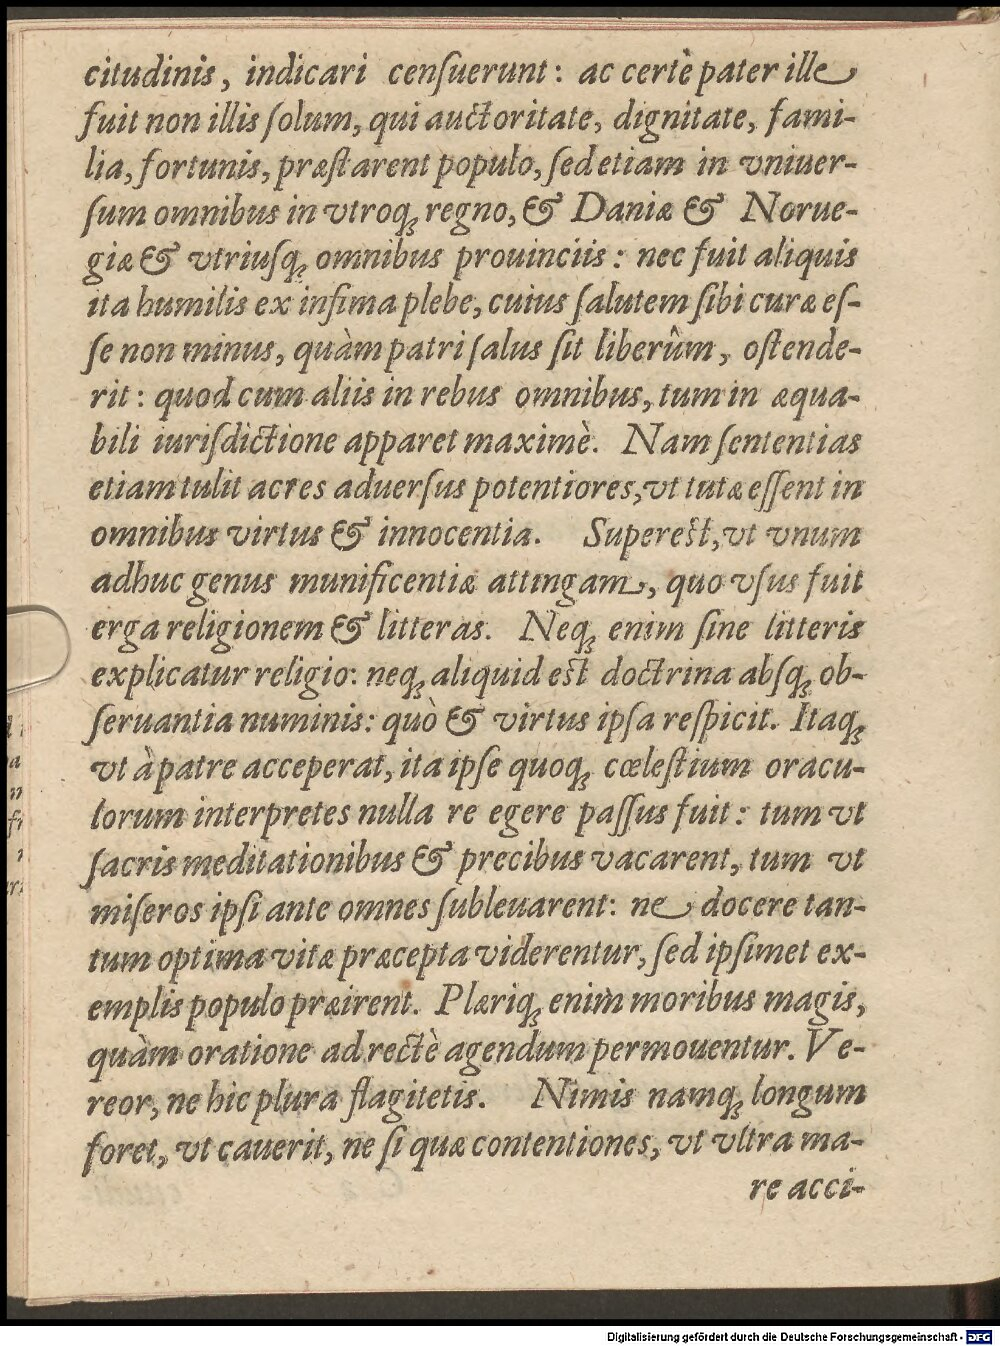 citudinis, indicari cenſuerunt: ac certè pater ille
fuit non illis ſolum, qui auctoritate, dignitate, fami-
lia, fortunis, præſtarent populo, ſed etiam in vniuer-
ſum omnibus in vtroq; regno, & Daniæ & Norue-
giæ & vtriuſq; omnibus prouinciis: nec fuit aliquis
ita humilis ex infima plebe, cuius ſalutem ſibi curæ eſ-
ſe non minus, quàm patri ſalus ſit liberûm, oſtende-
rit: quod cum aliis in rebus omnibus, tum in æqua-
bili iuriſdictione apparet maximè. Nam ſententias
etiam tulit acres aduerſus potentiores, vt tutæ eſſent in
omnibus virtus & innocentia. Supereſt, vt vnum
adhuc genus munificentiæ attingam, quo vſus fuit
erga religionem & litteras. Neq; enim ſine litteris
explicatur religio: neq; aliquid eſt doctrina abſq; ob-
ſeruantia numinis: quò & virtus ipſa reſpicit. Itaq;
vt à patre acceperat, ita ipſe quoq; cœleſtium oracu-
lorum interpretes nulla re egere paſſus fuit: tum vt
ſacris meditationibus & precibus vacarent, tum vt
miſeros ipſi ante omnes ſubleuarent: ne docere tan-
tum optima vitæ præcepta viderentur, ſed ipſimet ex-
emplis populo præirent. Plæriq; enim moribus magis,
quàm oratione ad rectè agendum permouentur. Ve-
reor, ne hic plura flagitetis. Nimis namq; longum
foret, vt cauerit, ne ſi quæ contentiones, vt vltra ma-
re acci-
Digitalisierung gefördert durch die Deutsche Forschungsgemeinschaft - DFG